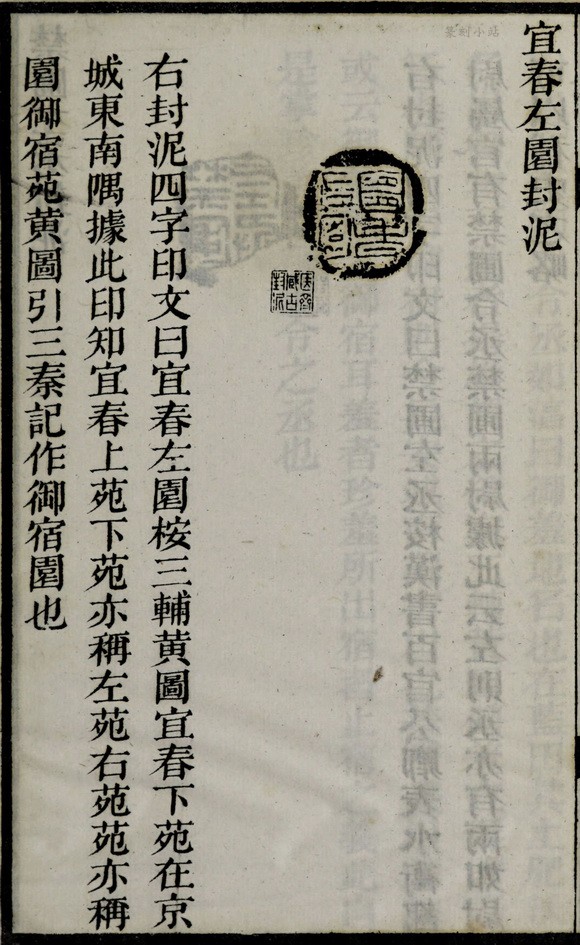 宜春左園封泥
右封泥四字印文曰宜春左園桉三輔黃圖宜春下苑在京
城東南隅據此印知宜春上苑下苑亦稱左苑右苑苑亦稱
園御宿苑黃圖引三秦記作御宿園也
篆刻小站